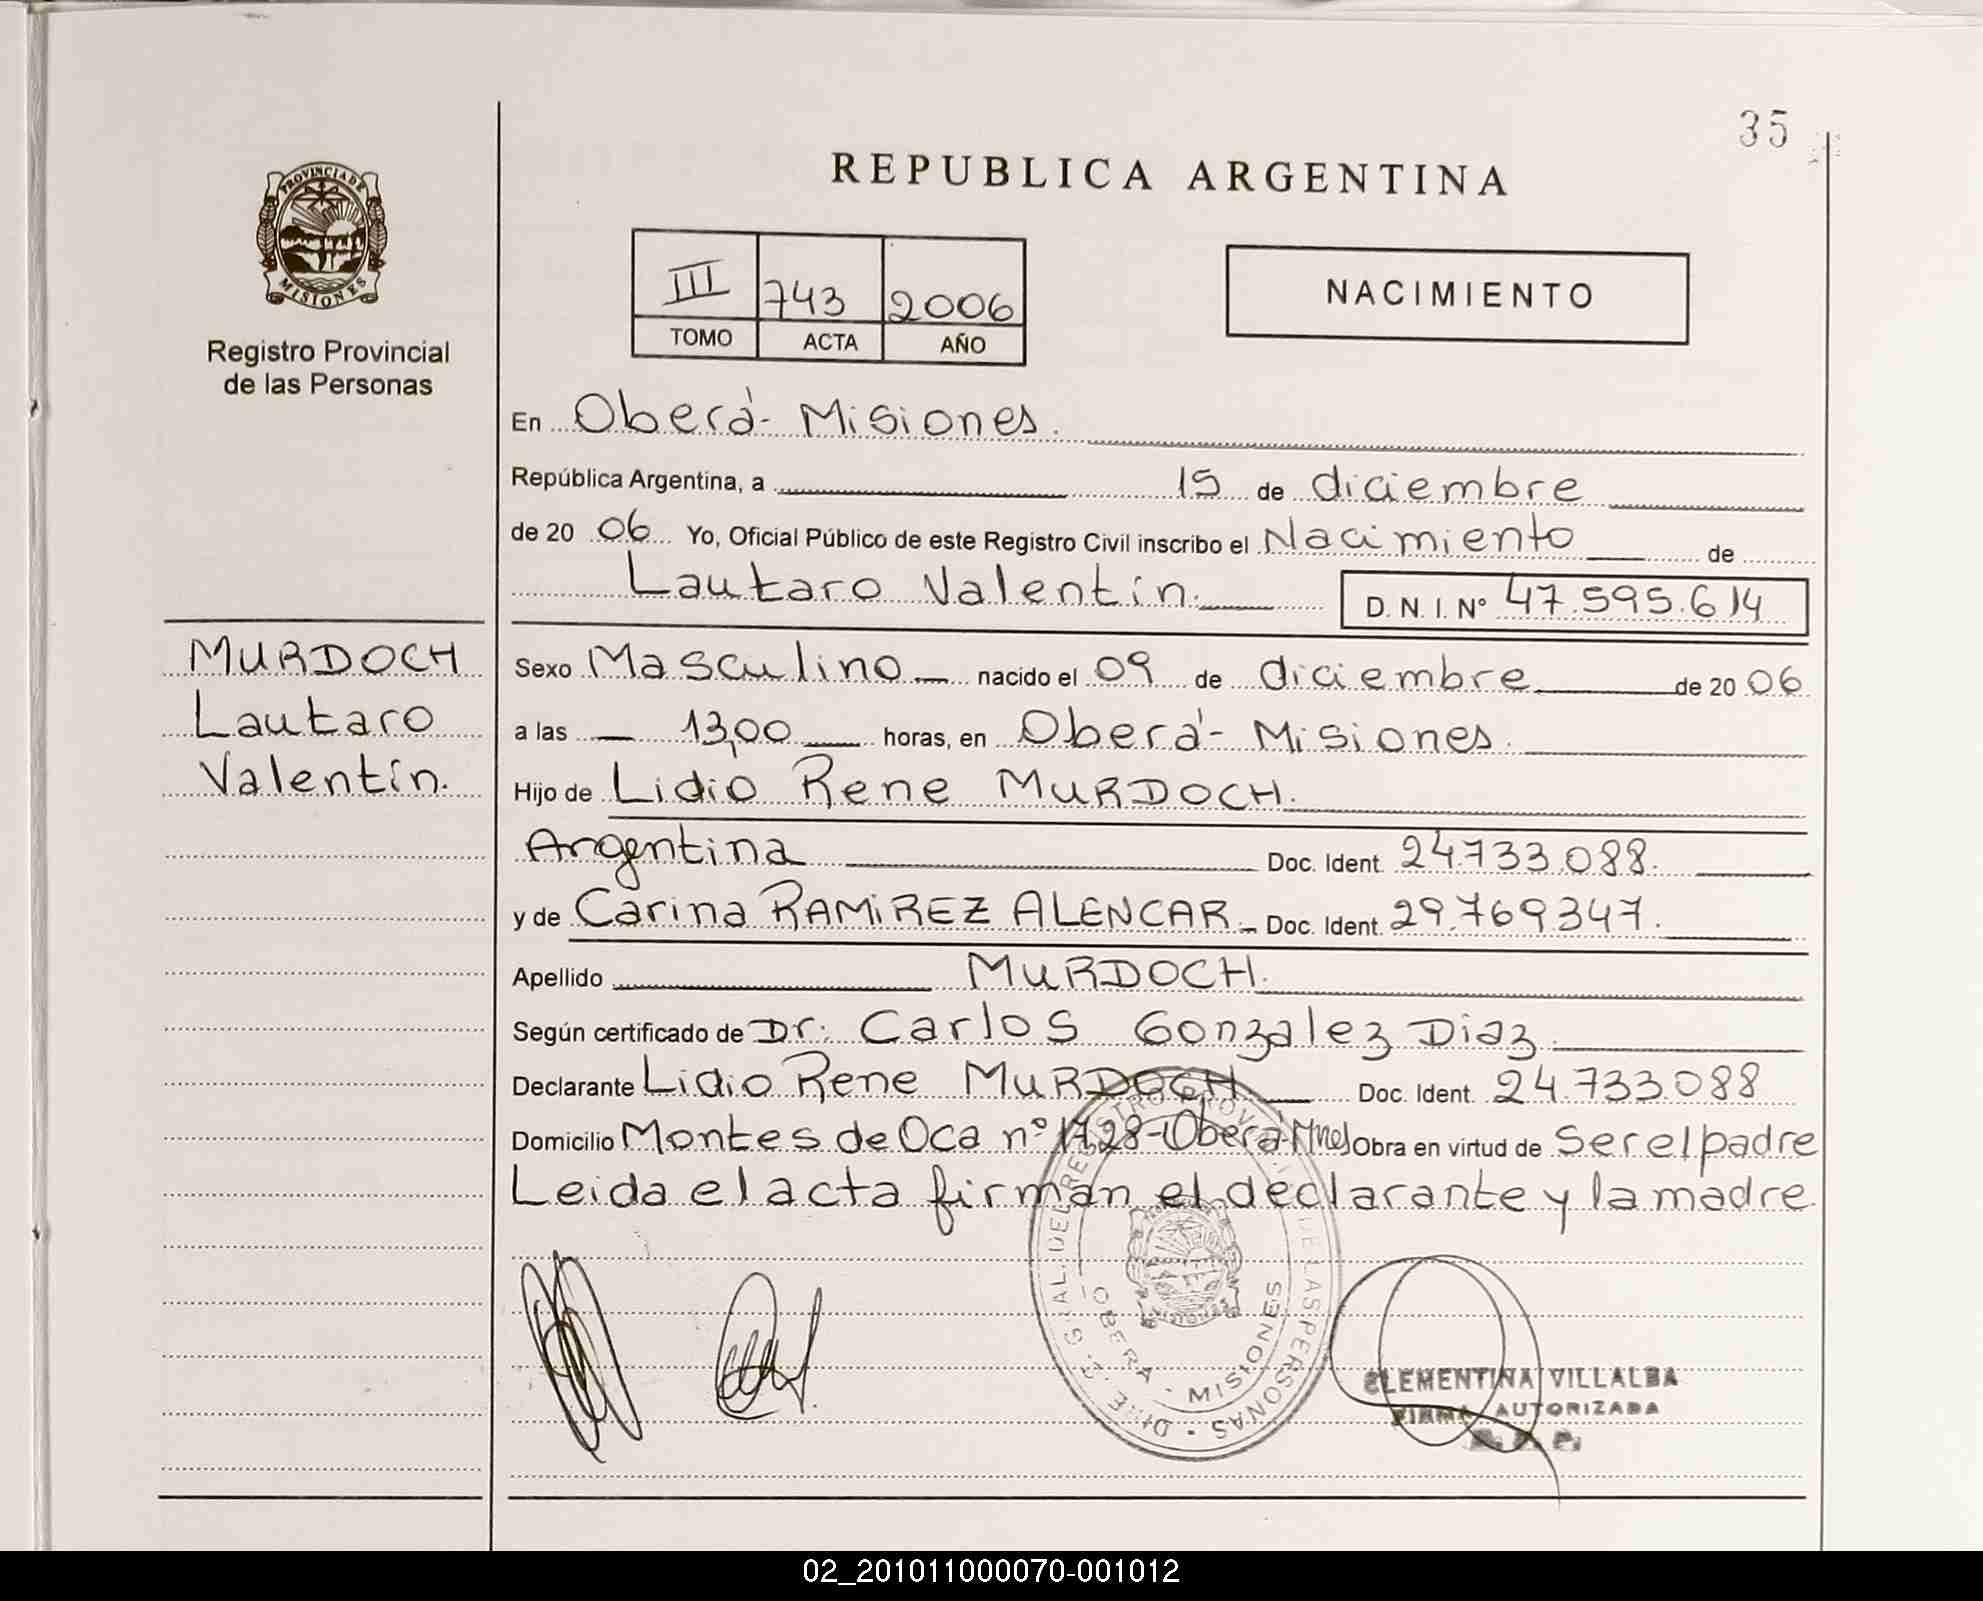 35
REPUBLICA ARGENTINA
PROVINCIA DE
MISIONES
Registro Provincial
de las Personas
III 743 2006
TOMO ACTA AÑO
NACIMIENTO
En Oberá- Misiones.
República Argentina, a 15 de diciembre
de 20 06 Yo, Oficial Público de este Registro Civil inscribo el Nacimiento de
Lautaro Valentín. D. N. I. Nº 47.595.614
MURDOCH
Lautaro
Valentín.
Sexo Masculino nacido el 09 de diciembre de 20 06
a las 13,00 horas, en Oberá- Misiones.
Hijo de Lidio Rene MURDOCH.
Argentina Doc. Ident. 24.733.088.
y de Carina RAMIREZ ALENCAR Doc. Ident. 29.769.347.
Apellido MURDOCH.
Según certificado de Dr: Carlos Gonzalez Diaz.
Declarante Lidio Rene MURDOCH Doc. Ident. 24.733.088
Domicilio Montes de Oca nº 1728-Oberá-Mnes Obra en virtud de Ser el padre
Leida el acta firman el declarante y la madre.
OBERA - MISIONES
CLEMENTINA VILLALBA
FIRMA AUTORIZADA
02_201011000070-001012